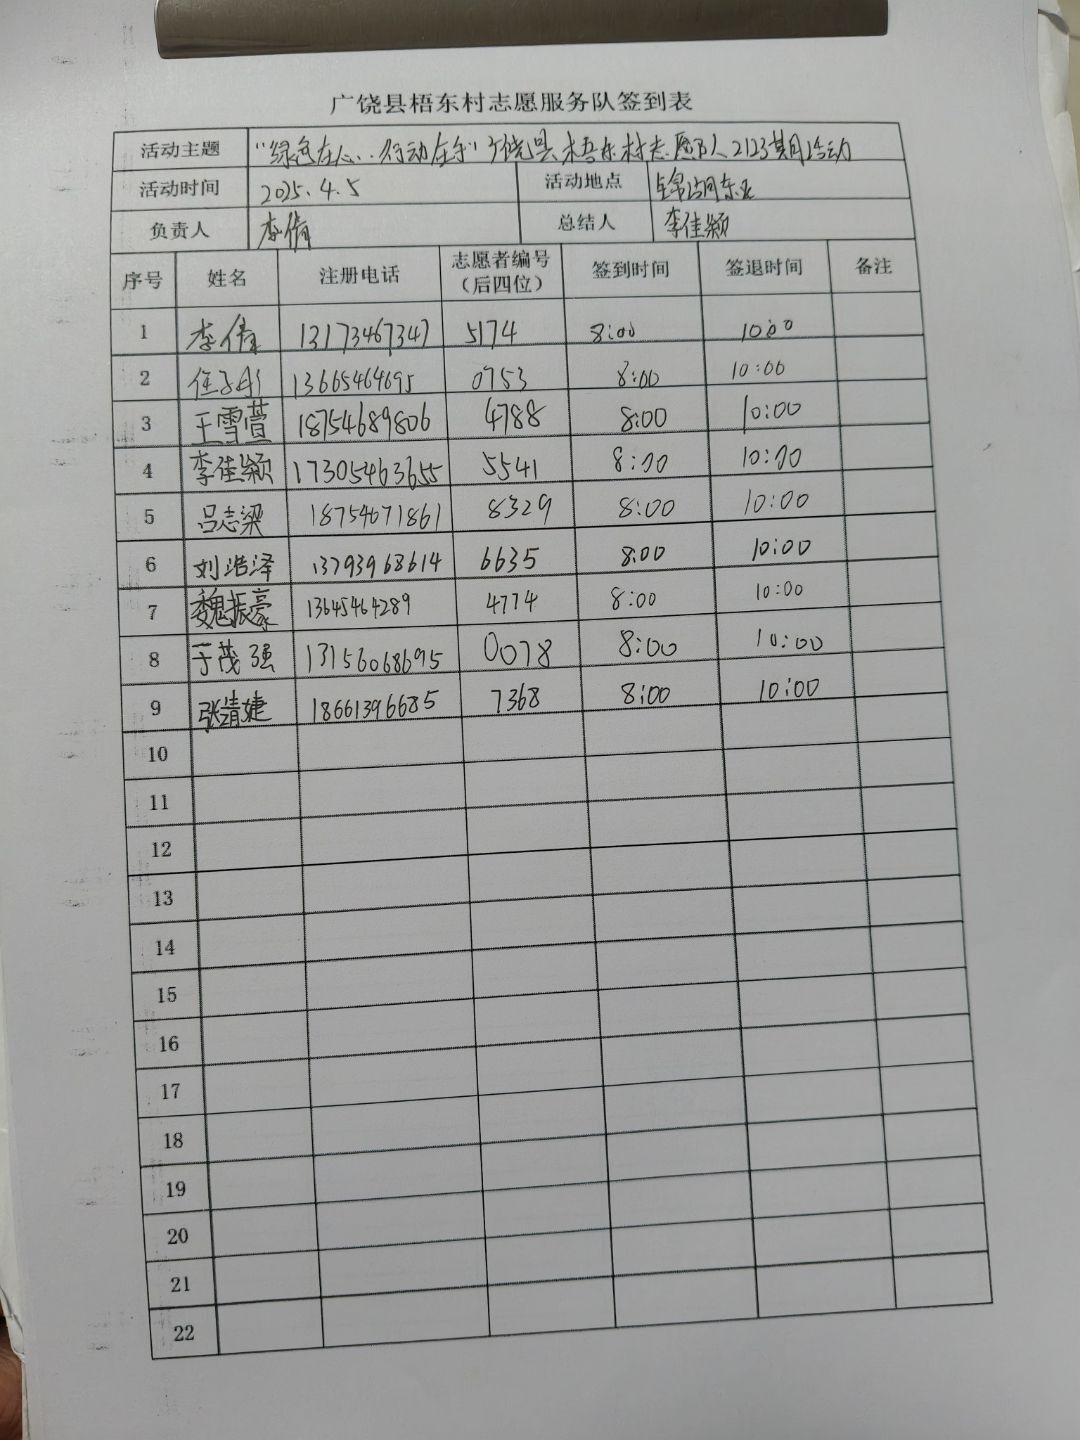 广饶县梧东村志愿服务队签到表
活动主题 "绿色在心..行动在手"广饶县梧东村志愿队2123期活动
活动时间 2025.4.5 活动地点 锦湖东
负责人 李倩 总结人 李佳颖
序号 姓名 注册电话 志愿者编号（后四位） 签到时间 签退时间 备注
1 李倩 13173467347 5174 8:00 10:00
2 任 13665464695 0753 8:00 10:00
3 王雪萱 18754689806 4788 8:00 10:00
4 李佳颖 17305463655 5541 8:00 10:00
5 吕志梁 18754671861 8329 8:00 10:00
6 刘浩泽 13793968614 6635 8:00 10:00
7 魏振豪 13645464289 4774 8:00 10:00
8 于茂强 13156068695 0078 8:00 10:00
9 张靖婕 18661396685 7368 8:00 10:00
10
11
12
13
14
15
16
17
18
19
20
21
22